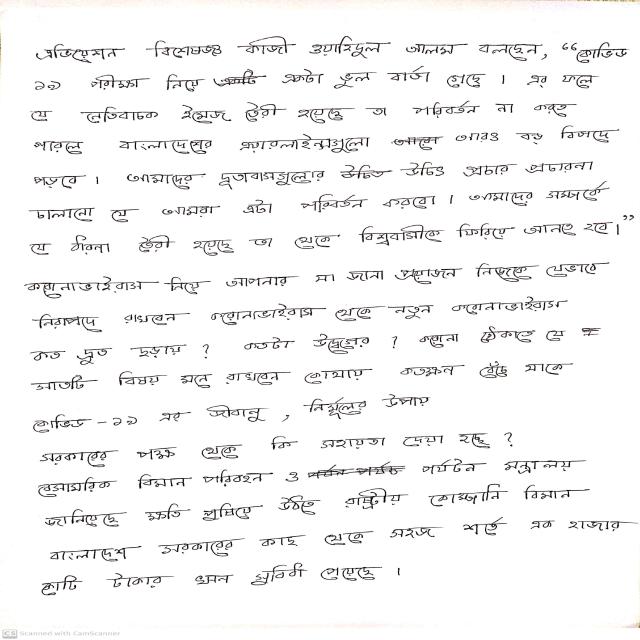 এভিয়েশন বিশেষজ্ঞ কাজী ওয়াহিদুল আলম বলছেন, “কোভিড
১৯ পরীক্ষা নিয়ে একটা ভুল বার্তা গেছে। এর ফলে
যে নেতিবাচক ইমেজ তৈরী হয়েছে তা পরিবর্তন না করতে
পারলে বাংলাদেশের এয়ারলাইন্সগুলো আরও বড় বিপদে
পড়বে। আমাদের দূতাবাসগুলোর উচিত উচিৎ প্রচার প্রচারনা
চালানো যে আমরা এটা পরিবর্তন করবো। আমাদের সম্পর্কে
যে ধারনা তৈরী হয়েছে তা থেকে বিশ্ববাসীকে ফিরিয়ে আনতে হবে।”
করোনাভাইরাস নিয়ে আপনার যা জানা প্রয়োজন নিজেকে যেভাবে
নিরাপদে রাখবেন করোনাভাইরাস থেকে নতুন করোনাভাইরাস
কত দ্রুত ছড়ায়? কতটা উদ্বেগের? করোনা ঠেকাতে যে
সাতটি বিষয় মনে রাখবেন কোথায় কতক্ষন বেঁচে থাকে
কোভিড-১৯ এর জীবানু, নির্মূলের উপায়
সরকারের পক্ষ থেকে কি সহায়তা দেয়া হচ্ছে?
বেসামরিক বিমান পরিবহন ও পর্যটন মন্ত্রালয়
জানিয়েছে ক্ষতি পুষিয়ে উঠতে রাষ্ট্রীয় কোম্পানি বিমান
বাংলাদেশ সরকারের কাছ থেকে সহজ শর্তে এক হাজার
কোটি টাকার ঋন সুবিধা পেয়েছে।
CS Scanned with CamScanner